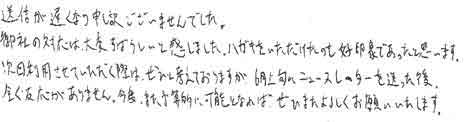 送信が遅くなり申訳ございませんでした。
御社の対応は大変すばらしいと感じました。ハガキをいただけたのも好印象であったと思います。
次回利用させていただく際は、ぜひと考えておりますが 6月上旬にニュースレターを送った後、
全く反応がありません。今度、また予算的に可能となれば ぜひまたよろしくお願いいたします。